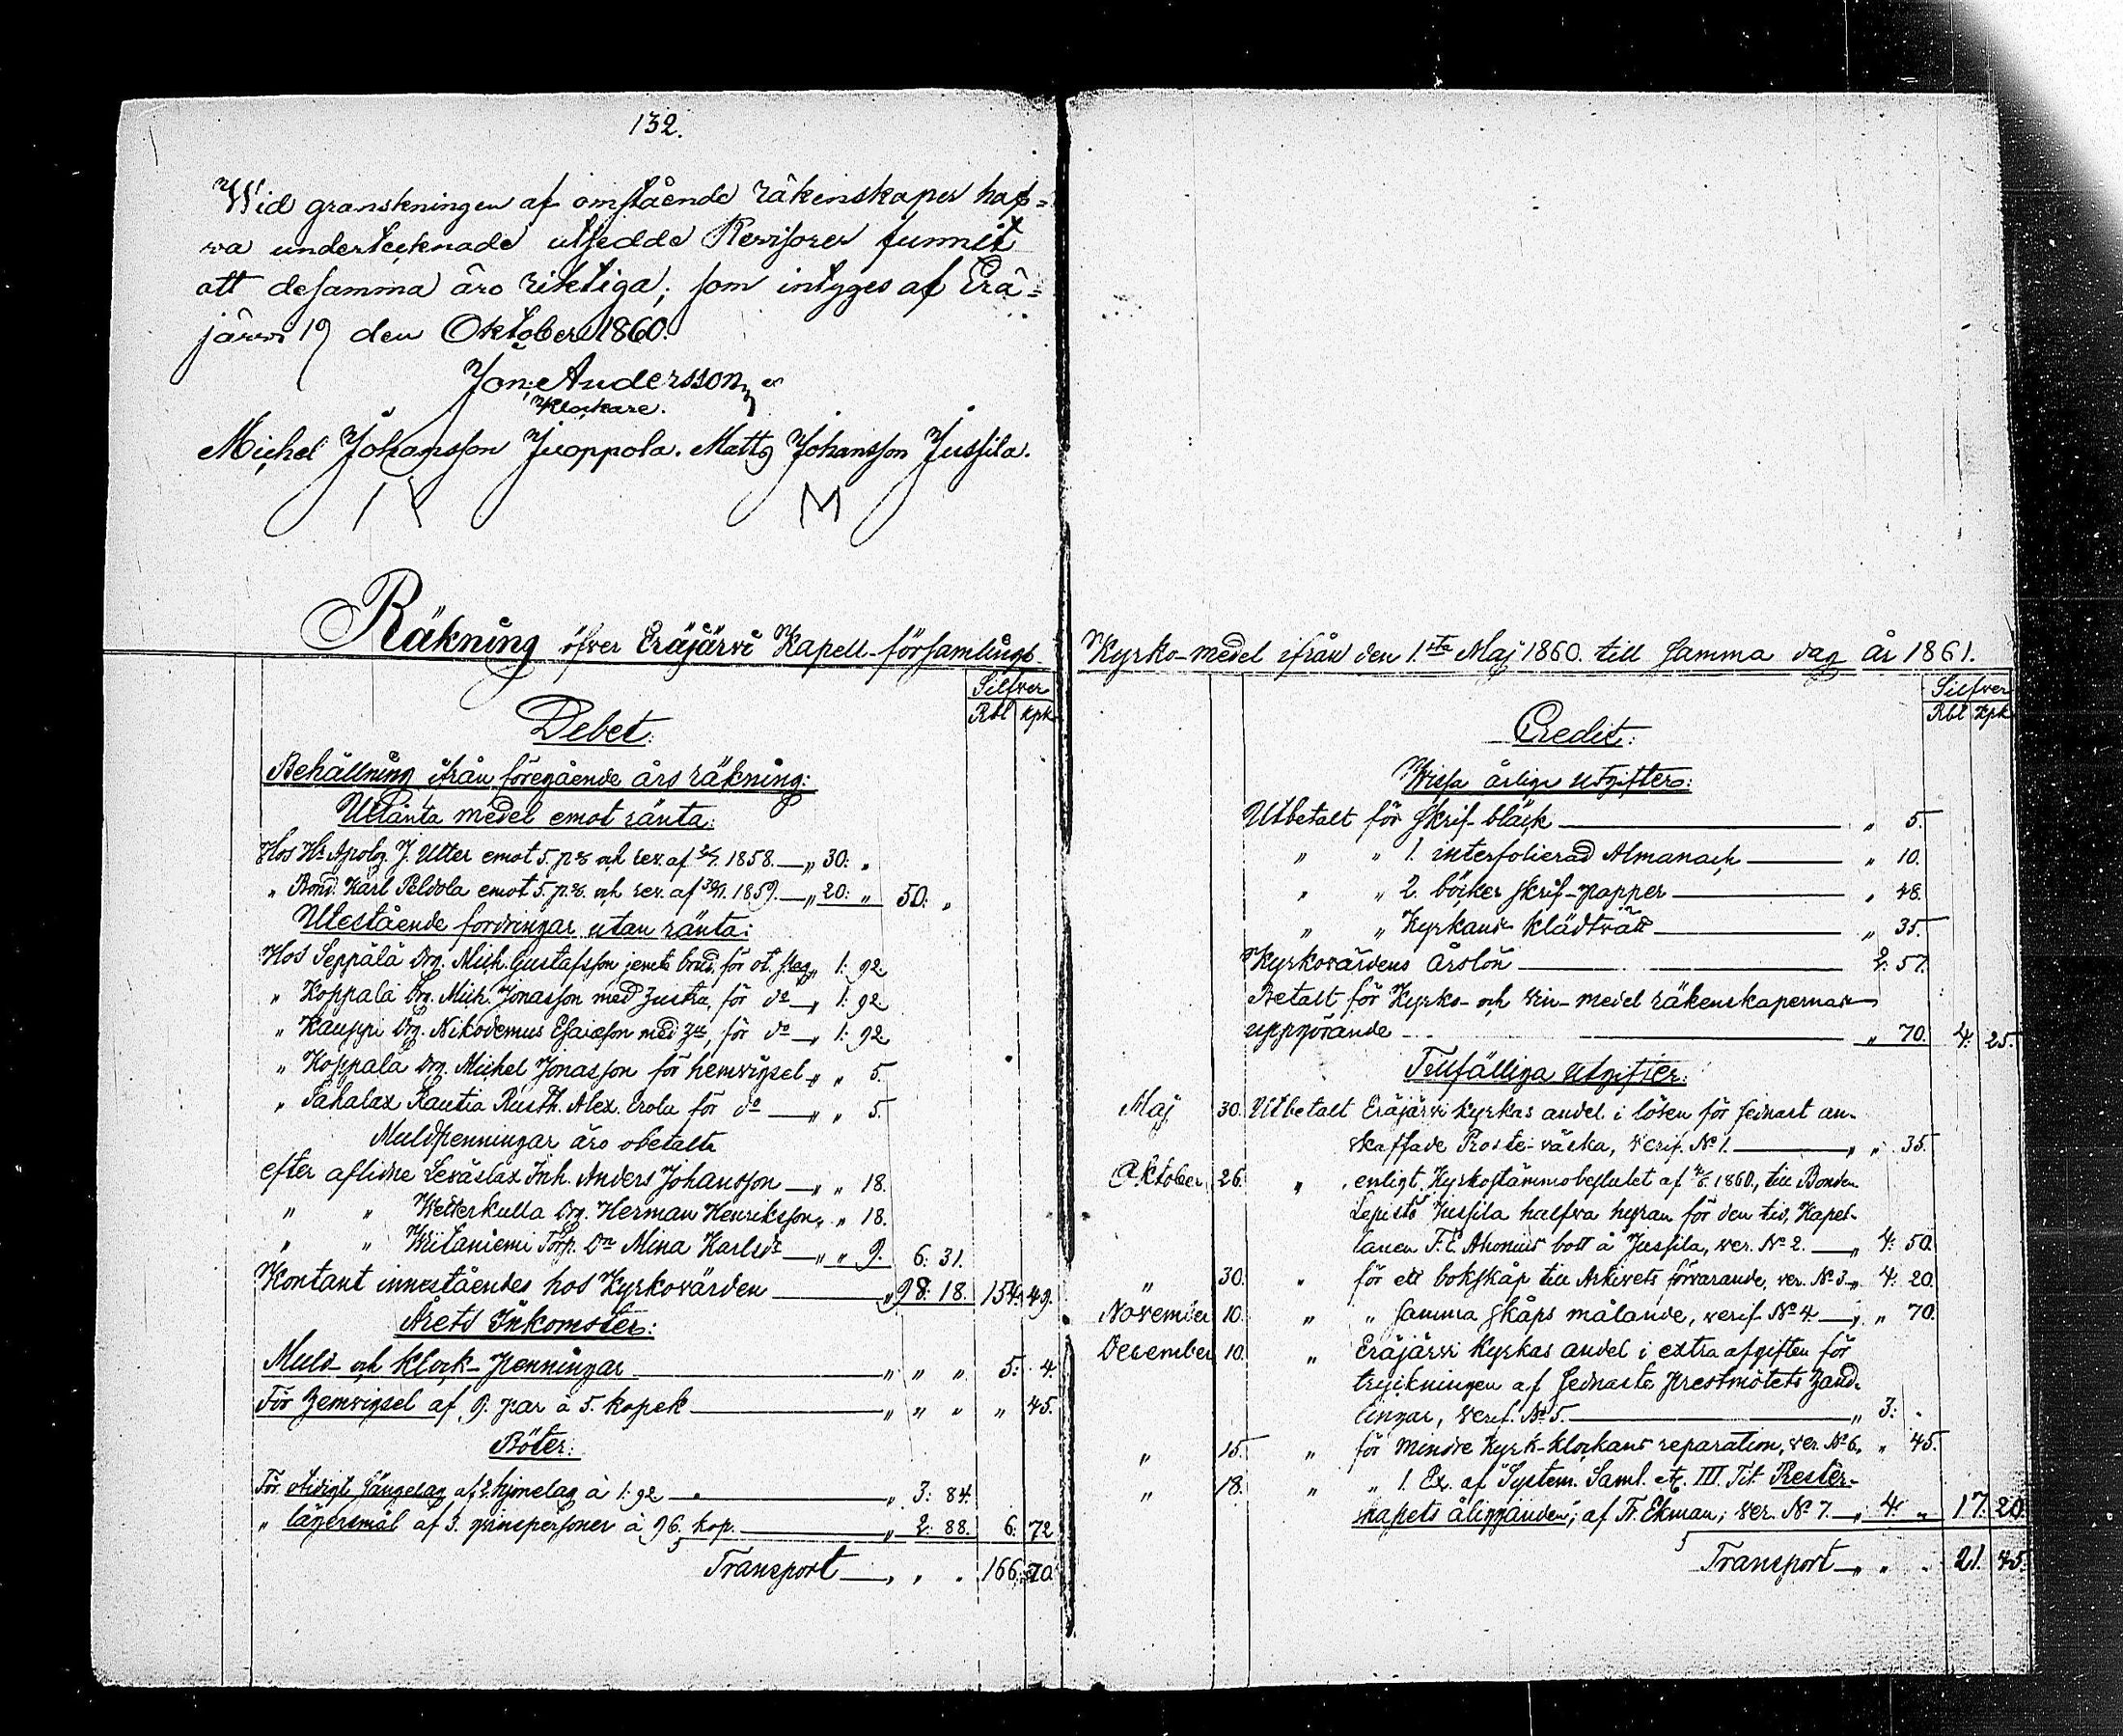 132.
Wid granskningen af omstående räkenskaper haf=
va undertecknade utsedde Revisorer funnit
att desamma äro riktiga; som intygges af Erä=
järvi 19 den Oktober 1860.
Jon: Andersson
Klockare.
Michel Johansson Juoppola. Matts Johansson Jussila.
M
Räkning öfver Eräjärvi Kapell-församlings
Silfver
Rbl Kpk
Debet:
Behållning ifrån föregående års räkning:
Utlånta medel emot ränta:
Hos Hr Apolog. J. Utter emot 5. p% och rev. af 1858. — „ 30: „
„ Bond. Karl Peldola emot 5. p%. och rev. af 1859. — „ 20: „ 50: „
Utestående fordringar utan ränta:
Hos Seppälä Drg. Mich. Gustafsson jemte brud, för ot. slag „ 1: 92.
„ Koppala Drg. Mich. Jonasson med hustru, för do — „ 1: 92.
„ Kauppi Drg. Nikodemus Esaiesson med hu, för do — „ 1: 92.
„ Koppala Drg. Michel Jonasson för hemvigsel „ „ 5.
„ Sahalax Rautia Rusth. Alex. Erola för do — „ „ 5.
Muldpenningar äro obetalte
efter aflidne Leväslax Inh. Anders Johansson — „ „ 18.
„ „ Wetterkulla Drg. Herman Henriksson „ „ 18.
„ „ Wiitaniemi Torp. Dn Mina Karlsdr — „ „ 9. 6: 31.
Kontant innestående hos Kyrkovärden — „ 98: 18. 154. 49.
Årets Inkomster:
Muld- och klock-penningar — „ „ „ 5: 4.
För hemvigsel af 9. par à 5. kopek — „ „ „ „ 45.
Böter:
För otidigt sängelag af 2. hjonelag à 1: 92 — „ 3: 84.
„ lägersmål af 3. qvinspersoner à 96. kop. — „ 2: 88. 6: 72
Transport — „ „ „ 166: 70.
Kyrko-medel ifrån den 1.sta Maj 1860. till samma dag år 1861.
Silfver
Rbl Kpk
Credit:
Wissa årliga utgifter:
Utbetalt för skrif-bläck — „ 5.
„ „ 1. interfolierad Almanach — „ 10.
„ „ 2. böcker skrif-papper — „ 48.
„ „ Kyrkans klädtvätt — „ 35.
Kyrkovärdens årslön — 2: 57.
Betalt för Kyrko- och vin-medel räkenskapernas
uppgörande — „ 70. 4: 25.
Tillfälliga utgifter:
Maj 30. Utbetalt Eräjärvi kyrkas andel i lösen för sednast an-
skaffade Proste-väska, Verif. No 1. — „ „ 35.
Oktober 26. „ enligt Kyrkostämmobeslutet af 1860., till Bonden
Lepistö Jussila halfva hyran för den tid, Kapel-
lanen F. E. Ahonius bott å Jussila, ver. No 2. — „ 4: 50.
„ 30. „ för ett bokskåp till Arkivets förvarande, ver. No 3. „ 4: 20.
November 10. „ „ samma skåps målande, verif. No 4 — „ „ 70.
December 10. „ Eräjärvi Kyrkas andel i extra afgiften för
tryckningen af sednaste Prestmötets hand-
lingar, Verif. No 5. — „ 3: „
„ 15. „ för mindre Kyrk-klockans reparation, ver. No 6. „ „ 45.
„ 18. „ „ 1. Ex. af System. Saml. etc. III. Tit Prester-
skapets åligganden; af Fr. Ekman; ver. No 7. „ 4: „ 17. 20.
Transport — „ „ „ 21. 45.